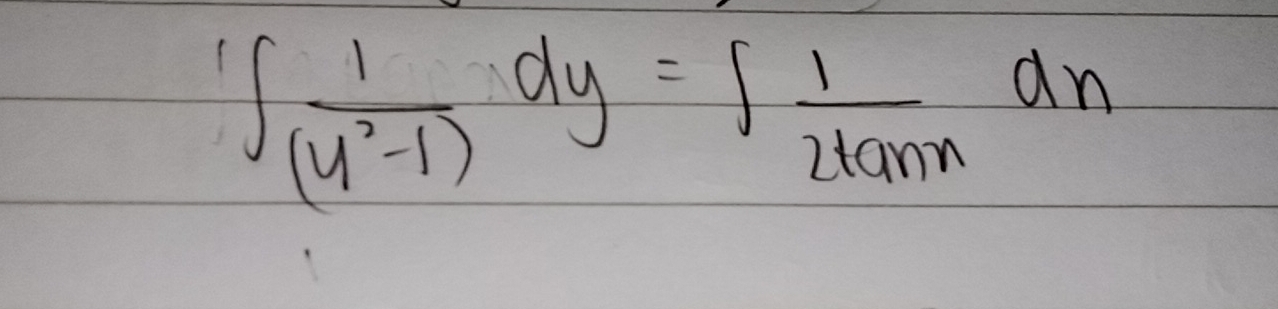 ∫ 1/(y²-1) dy = ∫ 1/(2tanx) dx